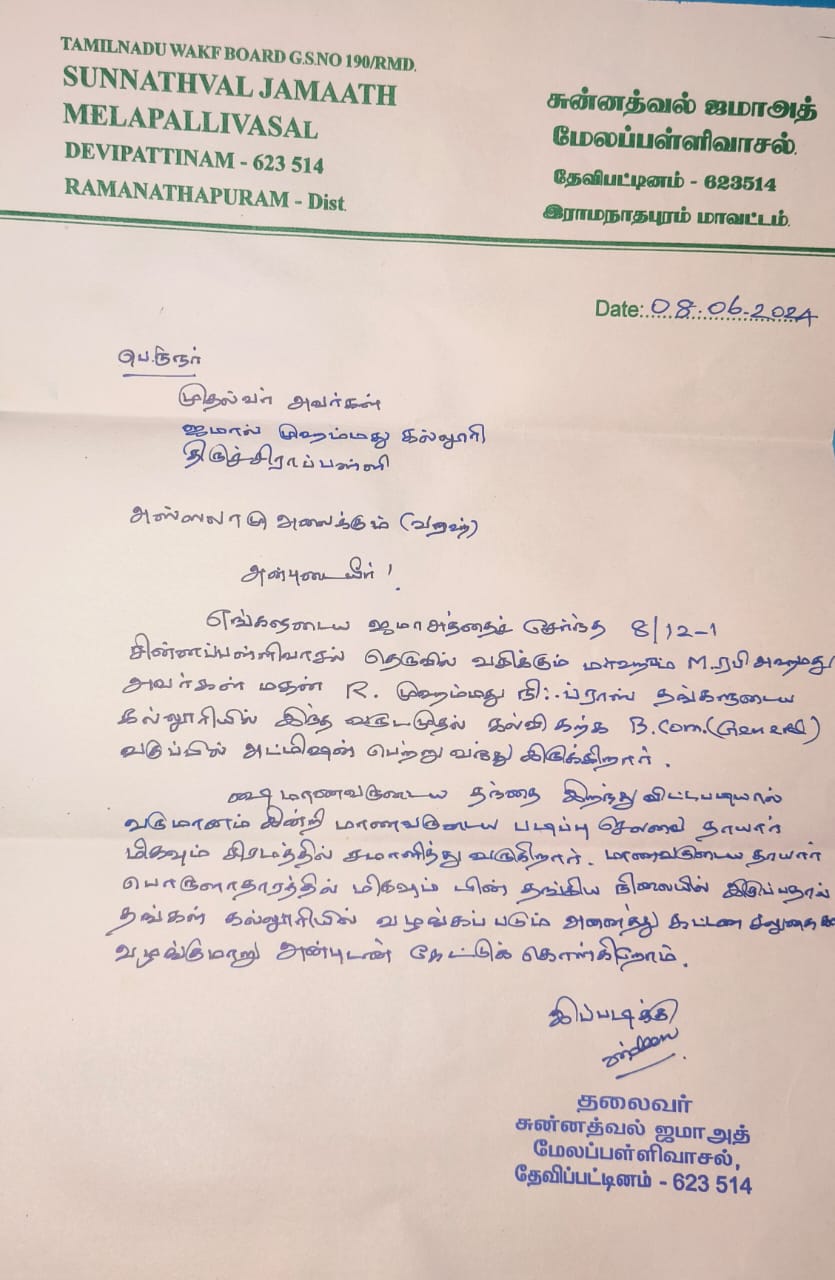 TAMILNADU WAKF BOARD G.S.NO 190/RMD.
SUNNATHVAL JAMAATH
MELAPALLIVASAL
DEVIPATTINAM - 623 514
RAMANATHAPURAM - Dist.
சுன்னத்வல் ஜமாஅத்
மேலப்பள்ளிவாசல்.
தேவிபட்டினம் - 623514
இராமநாதபுரம் மாவட்டம்.
Date: 08.06.2024
பெருநர்
முதல்வர் அவர்கள்
ஜமால் முஹம்மது கல்லூரி
திருச்சிராப்பள்ளி
அஸ்ஸலாமு அலைக்கும் (வரஹ்)
அன்புடையீர்!
எங்களுடைய ஜமாஅத்தைச் சேர்ந்த 8/12-1
சின்னப்பள்ளிவாசல் தெருவில் வசிக்கும் மர்ஹூம் M.ரபி அஹமது
அவர்கள் மகன் R. முஹம்மது நி..ப்ராஸ் தங்களுடைய
கல்லூரியில் இந்த வருடமுதல் கல்வி கற்க B.Com.(General)
வகுப்பில் அட்மிஷன் பெற்று வந்து இருக்கிறார்.
மாணவருடைய தந்தை இறந்து விட்டபடியால்
வருமானம் இன்றி மாணவருடைய படிப்பு செலவை தாயார்
மிகவும் சிரமத்தில் சமாளித்து வருகிறார். மாணவருடைய தாயார்
பொருளாதாரத்தில் மிகவும் பின் தங்கிய நிலையில் இருப்பதால்
தங்கள் கல்லூரியில் வழங்கப் படும் அனைத்து கட்டண சலுகைகளை
வழங்குமாறு அன்புடன் கேட்டுக் கொள்கிறோம்.
இப்படிக்கு
தலைவர்
சுன்னத்வல் ஜமாஅத்
மேலப்பள்ளிவாசல்,
தேவிப்பட்டினம் - 623 514